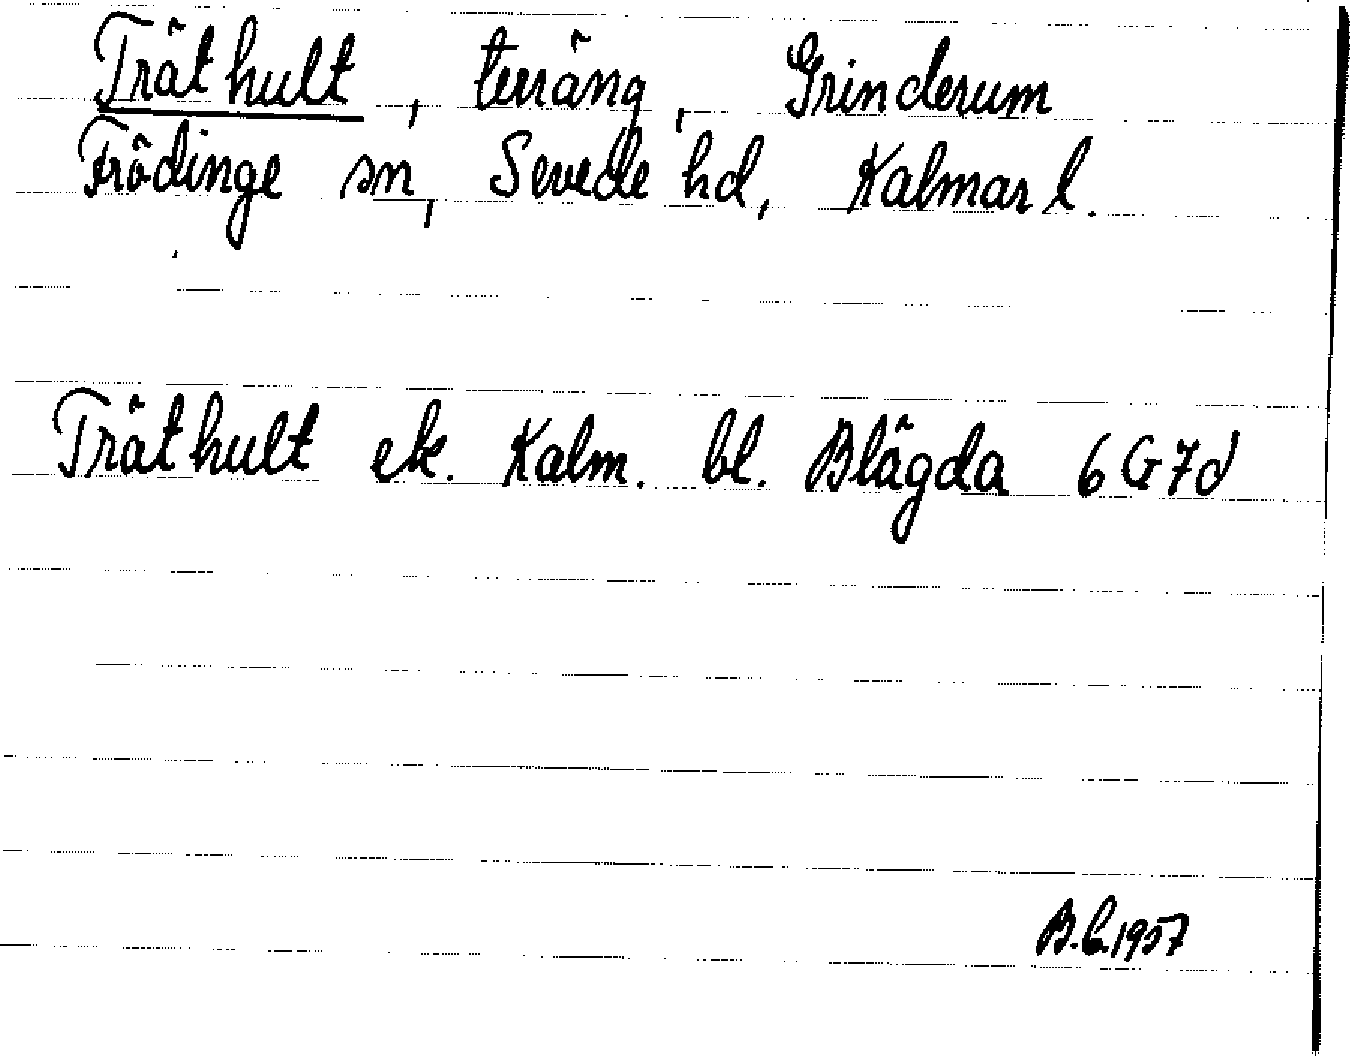 Träthult, terräng, Grinderum
Frödinge sn, Sevede hd, Kalmar l.
Träthult ek. Kalm. bl. Blägda 6G7d
B.C.1957